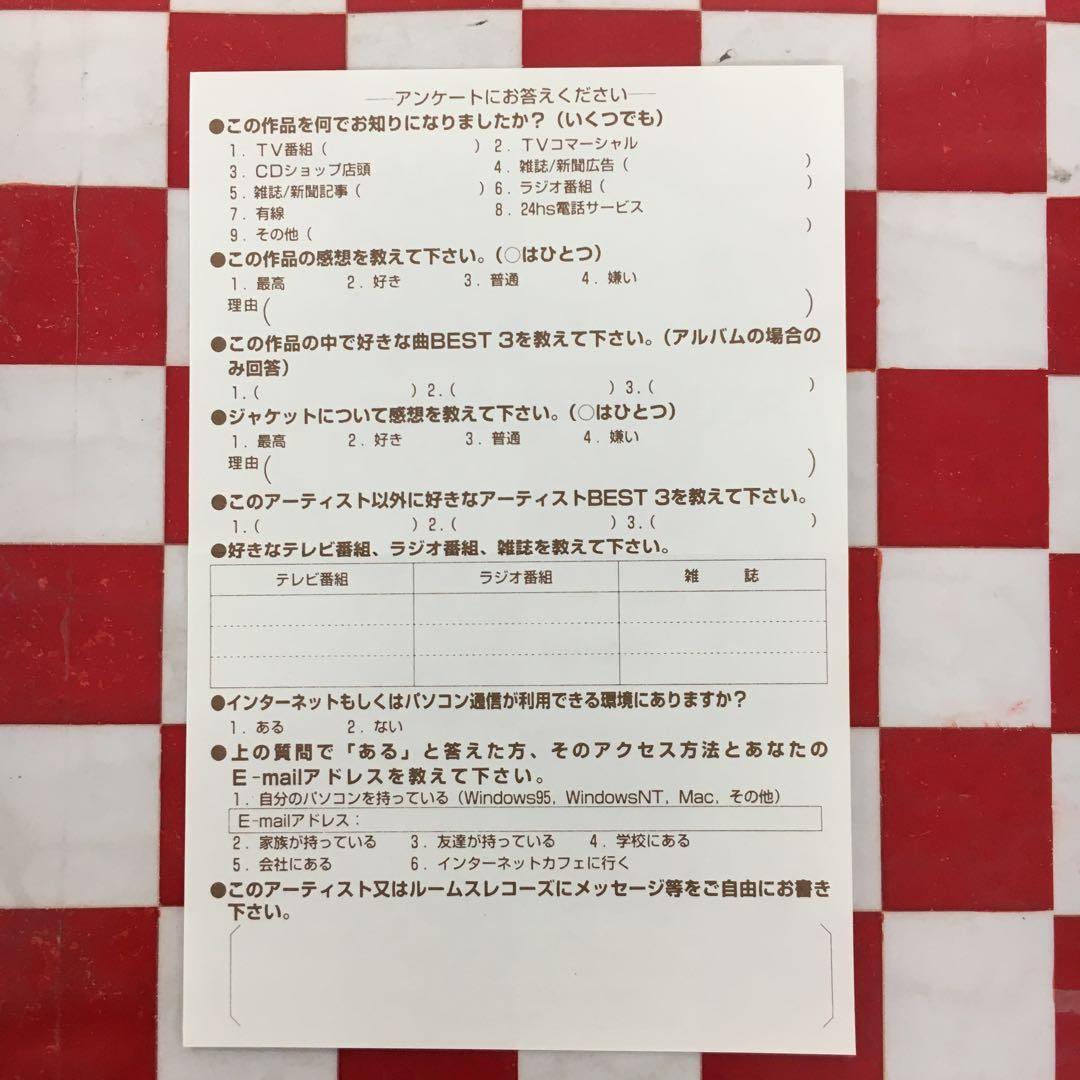 アンケートにお答えください
●この作品を何でお知りになりましたか？（いくつでも）
1．TV番組（　　　）2．TVコマーシャル
3．CDショップ店頭　4．雑誌/新聞広告（　　　）
5．雑誌/新聞記事（　　　）6．ラジオ番組（　　　）
7．有線　8．24hs電話サービス
9．その他（　　　）
●この作品の感想を教えて下さい。（○はひとつ）
1．最高　2．好き　3．普通　4．嫌い
理由（　　　）
●この作品の中で好きな曲BEST 3を教えて下さい。（アルバムの場合の
み回答）
1.（　　　）2.（　　　）3.（　　　）
●ジャケットについて感想を教えて下さい。（○はひとつ）
1．最高　2．好き　3．普通　4．嫌い
理由（　　　）
●このアーティスト以外に好きなアーティストBEST 3を教えて下さい。
1.（　　　）2.（　　　）3.（　　　）
●好きなテレビ番組、ラジオ番組、雑誌を教えて下さい。
テレビ番組　ラジオ番組　雑　誌
●インターネットもしくはパソコン通信が利用できる環境にありますか？
1．ある　2．ない
●上の質問で「ある」と答えた方、そのアクセス方法とあなたの
E-mailアドレスを教えて下さい。
1．自分のパソコンを持っている（Windows95, WindowsNT, Mac, その他）
E-mailアドレス：
2．家族が持っている　3．友達が持っている　4．学校にある
5．会社にある　6．インターネットカフェに行く
●このアーティスト又はルームスレコーズにメッセージ等をご自由にお書き
下さい。